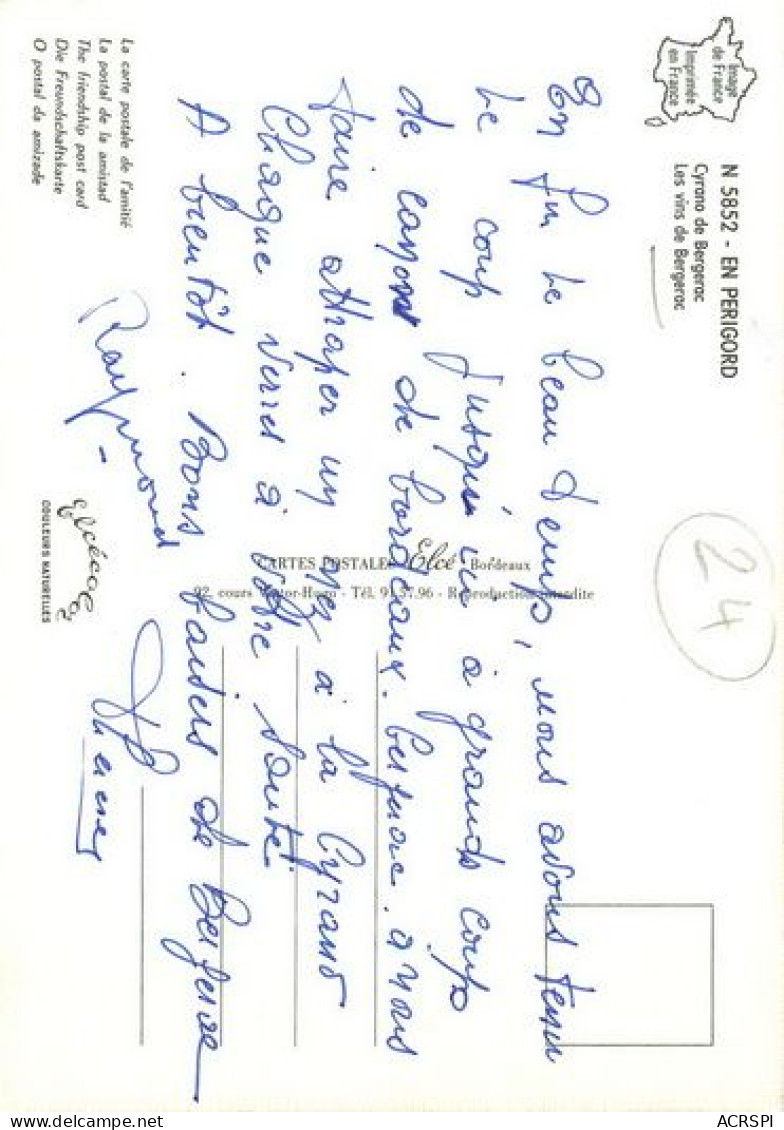 Image
de France
Imprimée
en France
N 5852 - EN PERIGORD
Cyrano de Bergerac
Les vins de Bergerac
24
En fin le beau temps, nous avons tenu
le coup jusqu'ici à grands coups
de canons de bordeaux. Bergerac. à nous
faire attraper un nez à la Cyrano
Chaque verres à votre santé.
A bientôt. Bons baisers de Bergerac
Raymond
CARTES POSTALES Elcé Bordeaux
92, cours Victor-Hugo - Tél. 91.57.96 - Reproduction interdite
elcécolor
COULEURS NATURELLES
La carte postale de l'amitié
La postal de la amistad
The friendship post card
Die Freundschaftskarte
O postal da amizade
delcampe.net
ACRSPI